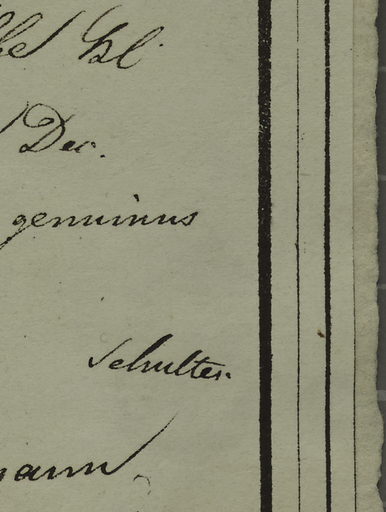 Bl.
Dec.
genuinus
Schultes.
mann